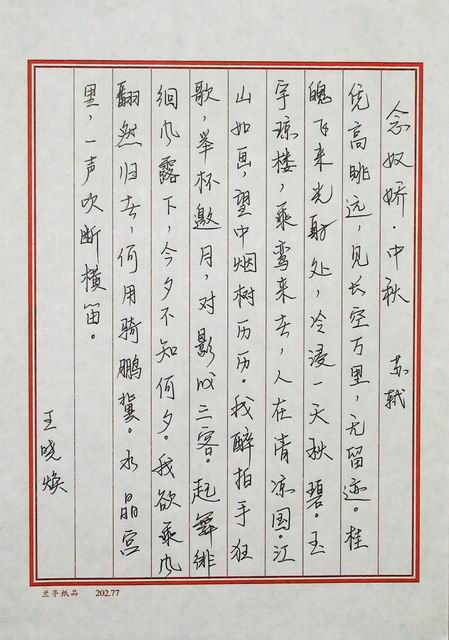 念奴娇·中秋 苏轼
凭高眺远，见长空万里，无留迹。桂
魄飞来光射处，冷浸一天秋碧。玉
宇琼楼，乘鸾来去，人在清凉国。江
山如画，望中烟树历历。我醉拍手狂
歌，举杯邀月，对影成三客。起舞徘
徊风露下，今夕不知何夕。我欲乘风
翻然归去，何用骑鹏翼。水晶宫
里，一声吹断横笛。
王晓焕
兰亭纸品 202.77